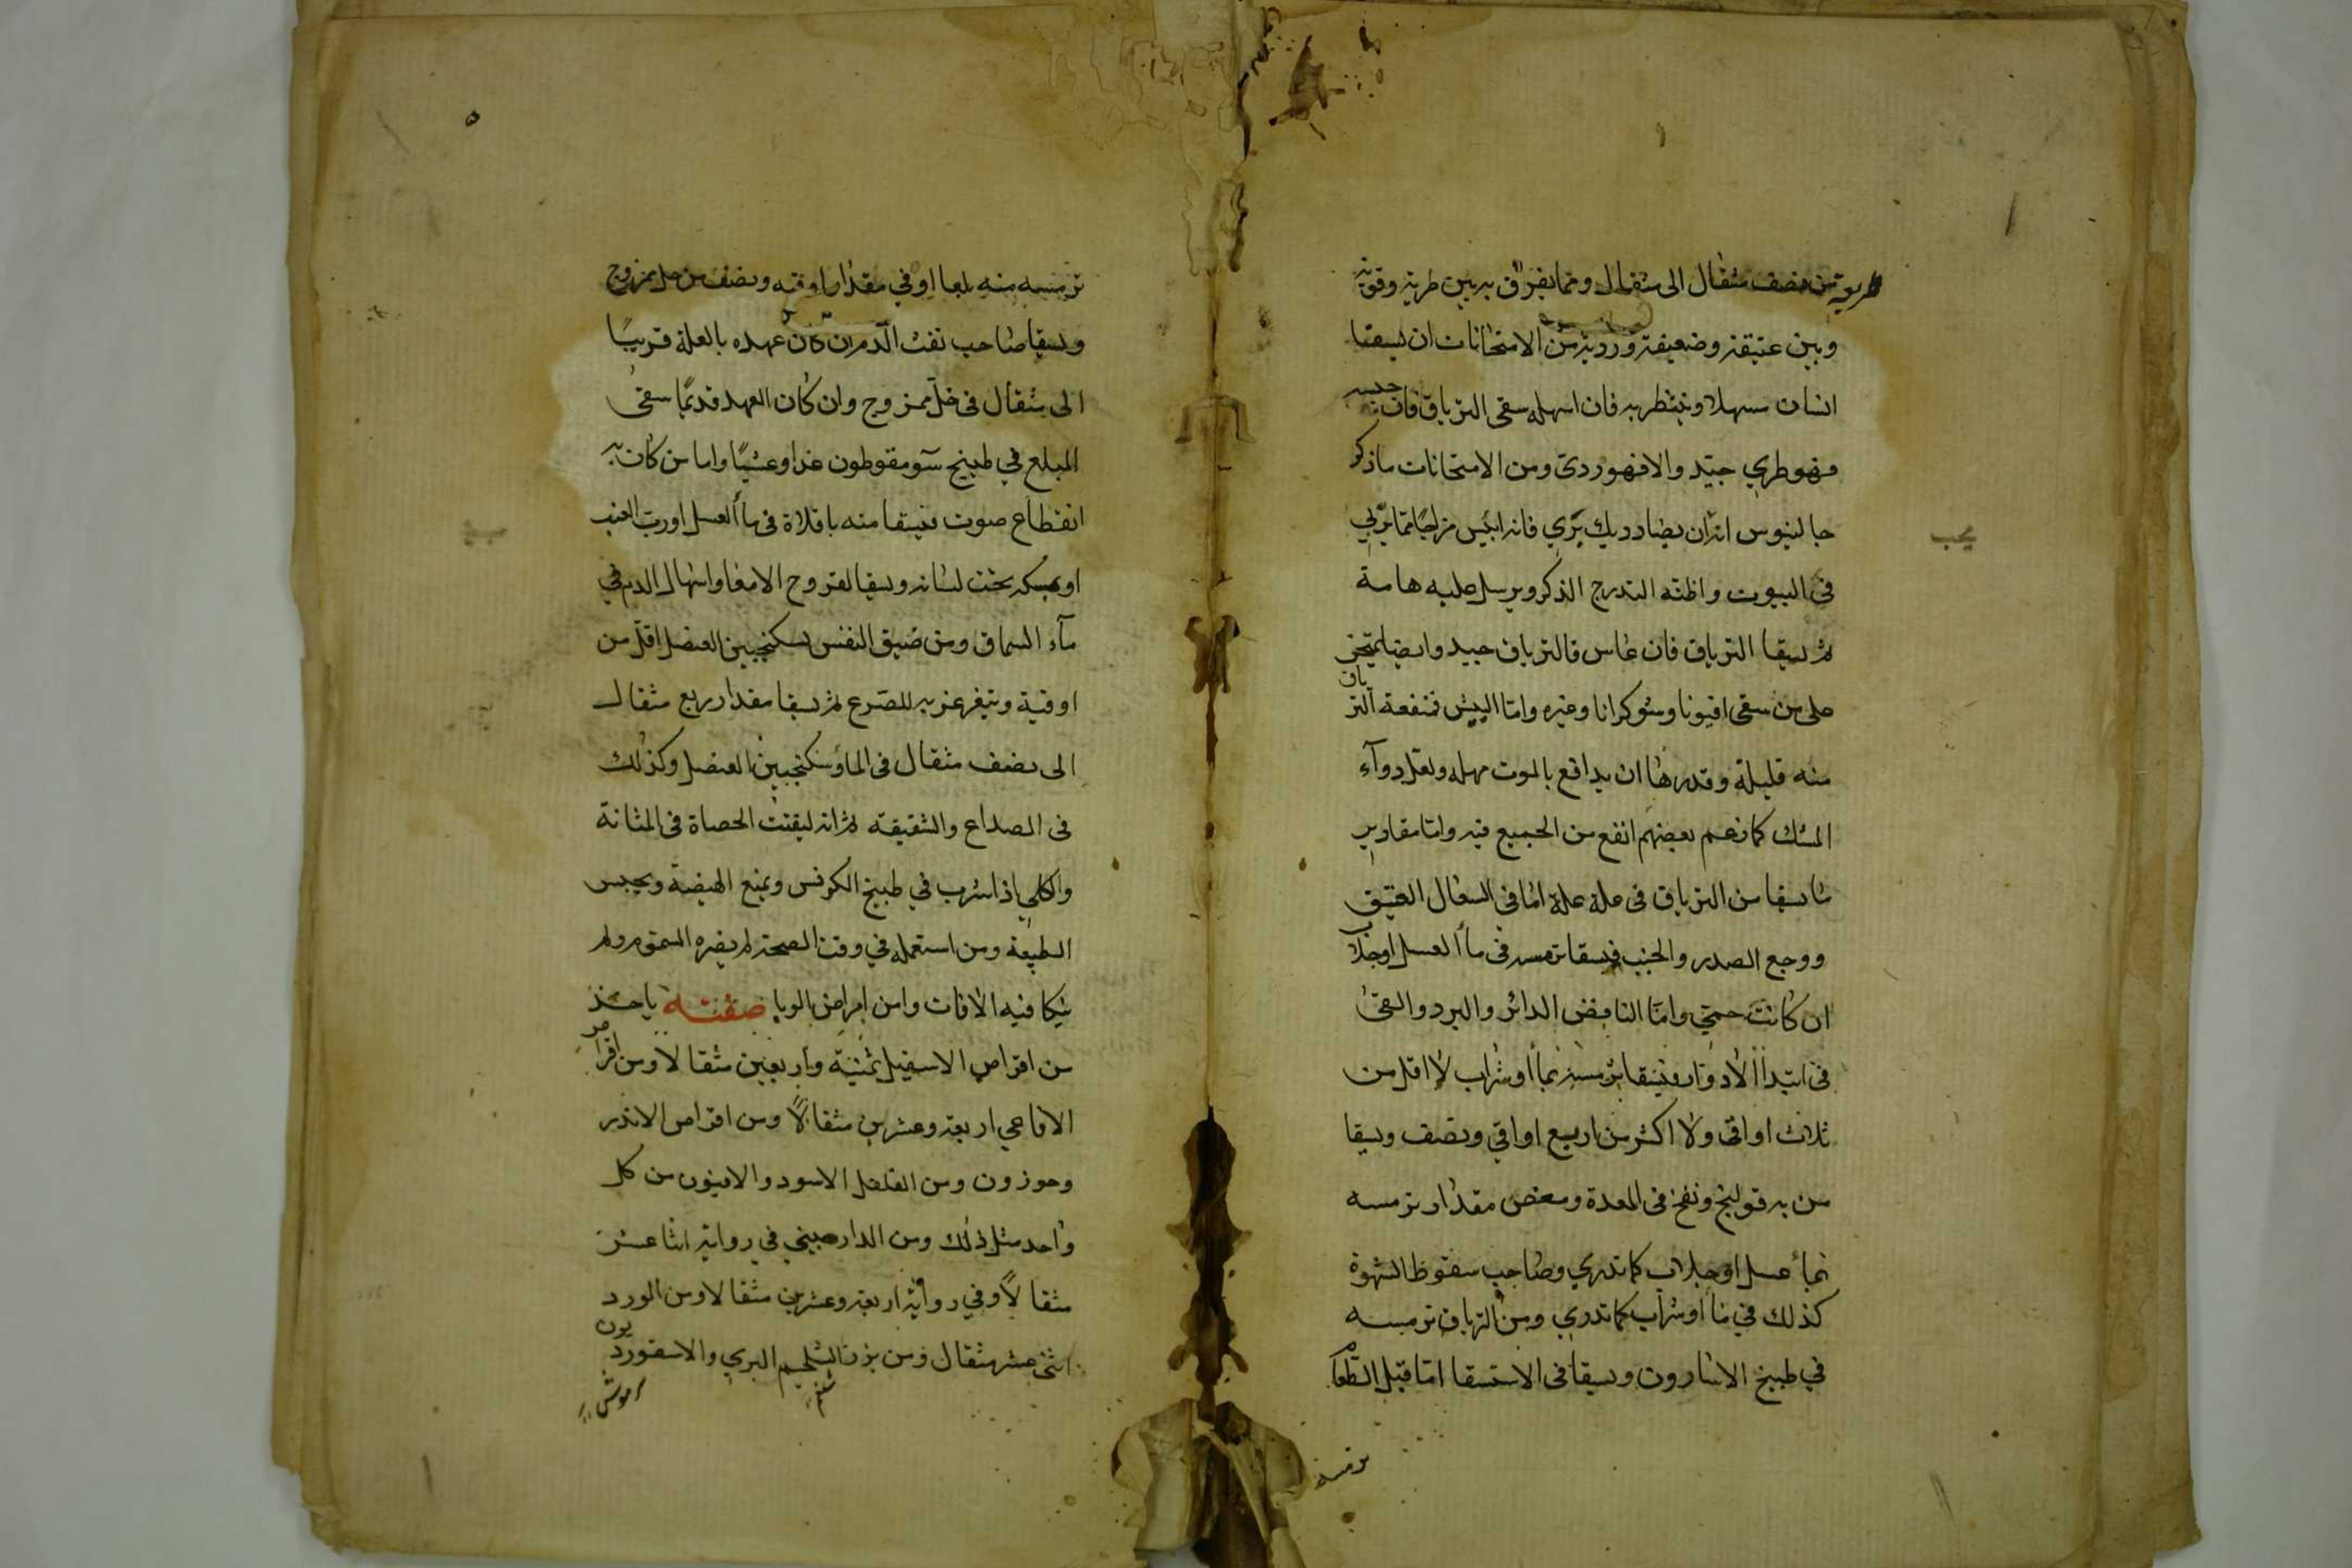 طريه من نصف مثقال الى مثقال ومما يفرق به بين طريه وقويه
وبين عتيقه وضعيفه ورديه من الامتحانات ان يسقا
انسان مسهلا وينتظر به فان اسهله سقى الترياق فان حبسه
فهو طري جيد والا فهو ردى ومن الامتحانات ما ذكر
جالينوس انه ان يصاد ديك بري فانه ايبس مزاجا مما يربي
في البيوت واظنه التدرج الذكر ويرسل عليه هامة
ثم يسقا الترياق فان عاش فالترياق جيد وايضا يمتحن
على من سقى افيونا وشوكرانا وغيره واما البيش فمنفعة الترياق
منه قليلة وقدرها ان يدافع بالموت مهله ولعل دوآء
المسك كما زعم بعضهم انفع من الجميع فيه واما مقادير
ما يسقا من الترياق في علة علة اما في السعال العتيق
ووجع الصدر والجنب فيسقا ترمسه في مأ العسل او جلاب
ان كانت حمى واما النافض الدائر والبرد والقئ
في ابتدأ الادوار فيسقا ترمسه بمأ او شراب لا اقل من
ثلاث اواقى ولا اكثر من اربع اواقي ونصف ويسقا
من به قولنج ونفخ في المعدة ومغص مقدار ترمسه
بمأ عسل او جلاب كما تدري وصاحب سقوط الشهوة
كذلك في مأ او شراب كما تدري ومن الترياق ترمسه
في طبيخ الاسارون ويسقا في الاستسقا اما قبل الطعام
ترمسه
يجب
ترمسه منه بلعا او في مقدار اوقيه ونصف من خل ممزوج
ويسقا صاحب نفث الدم ان كان عهده بالعلة قريبًا
الى مثقال في خل ممزوج وان كان العهد قديمًا سقى
المبلغ في طبيخ سومقوطون غدا وعشيًا واما من كان به
انقطاع صوت فيسقا منه باقلاة في مأ العسل او رب العنب
او يمسكه تحت لسانه ويسقا لقروح الامعا واسهال الدم في
مآء السماق ومن ضيق النفس بسكنجبين العنصل اقل من
اوقية ويتغرغر به للصرع ثم يسقا مقدار ربع مثقال
الى نصف مثقال في المأ وسكنجبين العنصل وكذلك
في الصداع والشقيقه ثم انه ليفتت الحصاة في المثانة
والكلي اذا شرب في طبيخ الكرفس ويمنع الهيضة ويحبس
الطبيعة ومن استعمله في وقت الصحة لم يضره السموم ولم
ينكا فيه الافات وامن امراض الوبا صفته ياخذ
من اقراص الاسقيل ثمنية واربعين مثقالا ومن اقراص
الافاعي اربعة وعشرين مثقالاً ومن اقراص الاندر
وخوزون ومن الفلفل الاسود والافيون من كل
واحد مثل ذلك ومن الدارصيني في رواية اثنا عشر
مثقالاً وفي رواية اربعة وعشرين مثقالا ومن الورد
اثنى عشر مثقال ومن بزر الشلجم البري والاسقورديون
شلغم